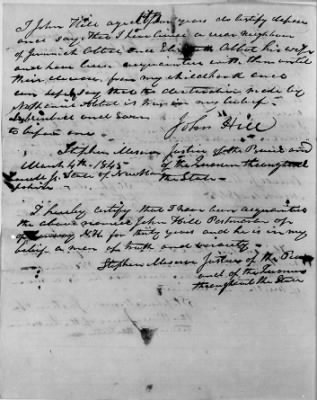 I John Hill aged fifty years do certify depose
and say that I have lived a near neighbour
of Jeremiah Abbot and Elizabeth Abbot his wife
and have been acquainted with them and
their children from my childhood and
can say that the declaration made by
Nathaniel Abbot is true in my belief
Subscribed and sworn
to before me
John Hill
Stephen Meserve Justice of the Peace and
March 4th. 1845 of the Quorum throughout
State of New Ham the State
I hereby certify that I have been acquainted
the above named John Hill Postmaster of
NH for thirty years and he is in my
belief a man of truth and veracity
Stephen Meserve Justice of the Peace
and of the Quorum
throughout the State